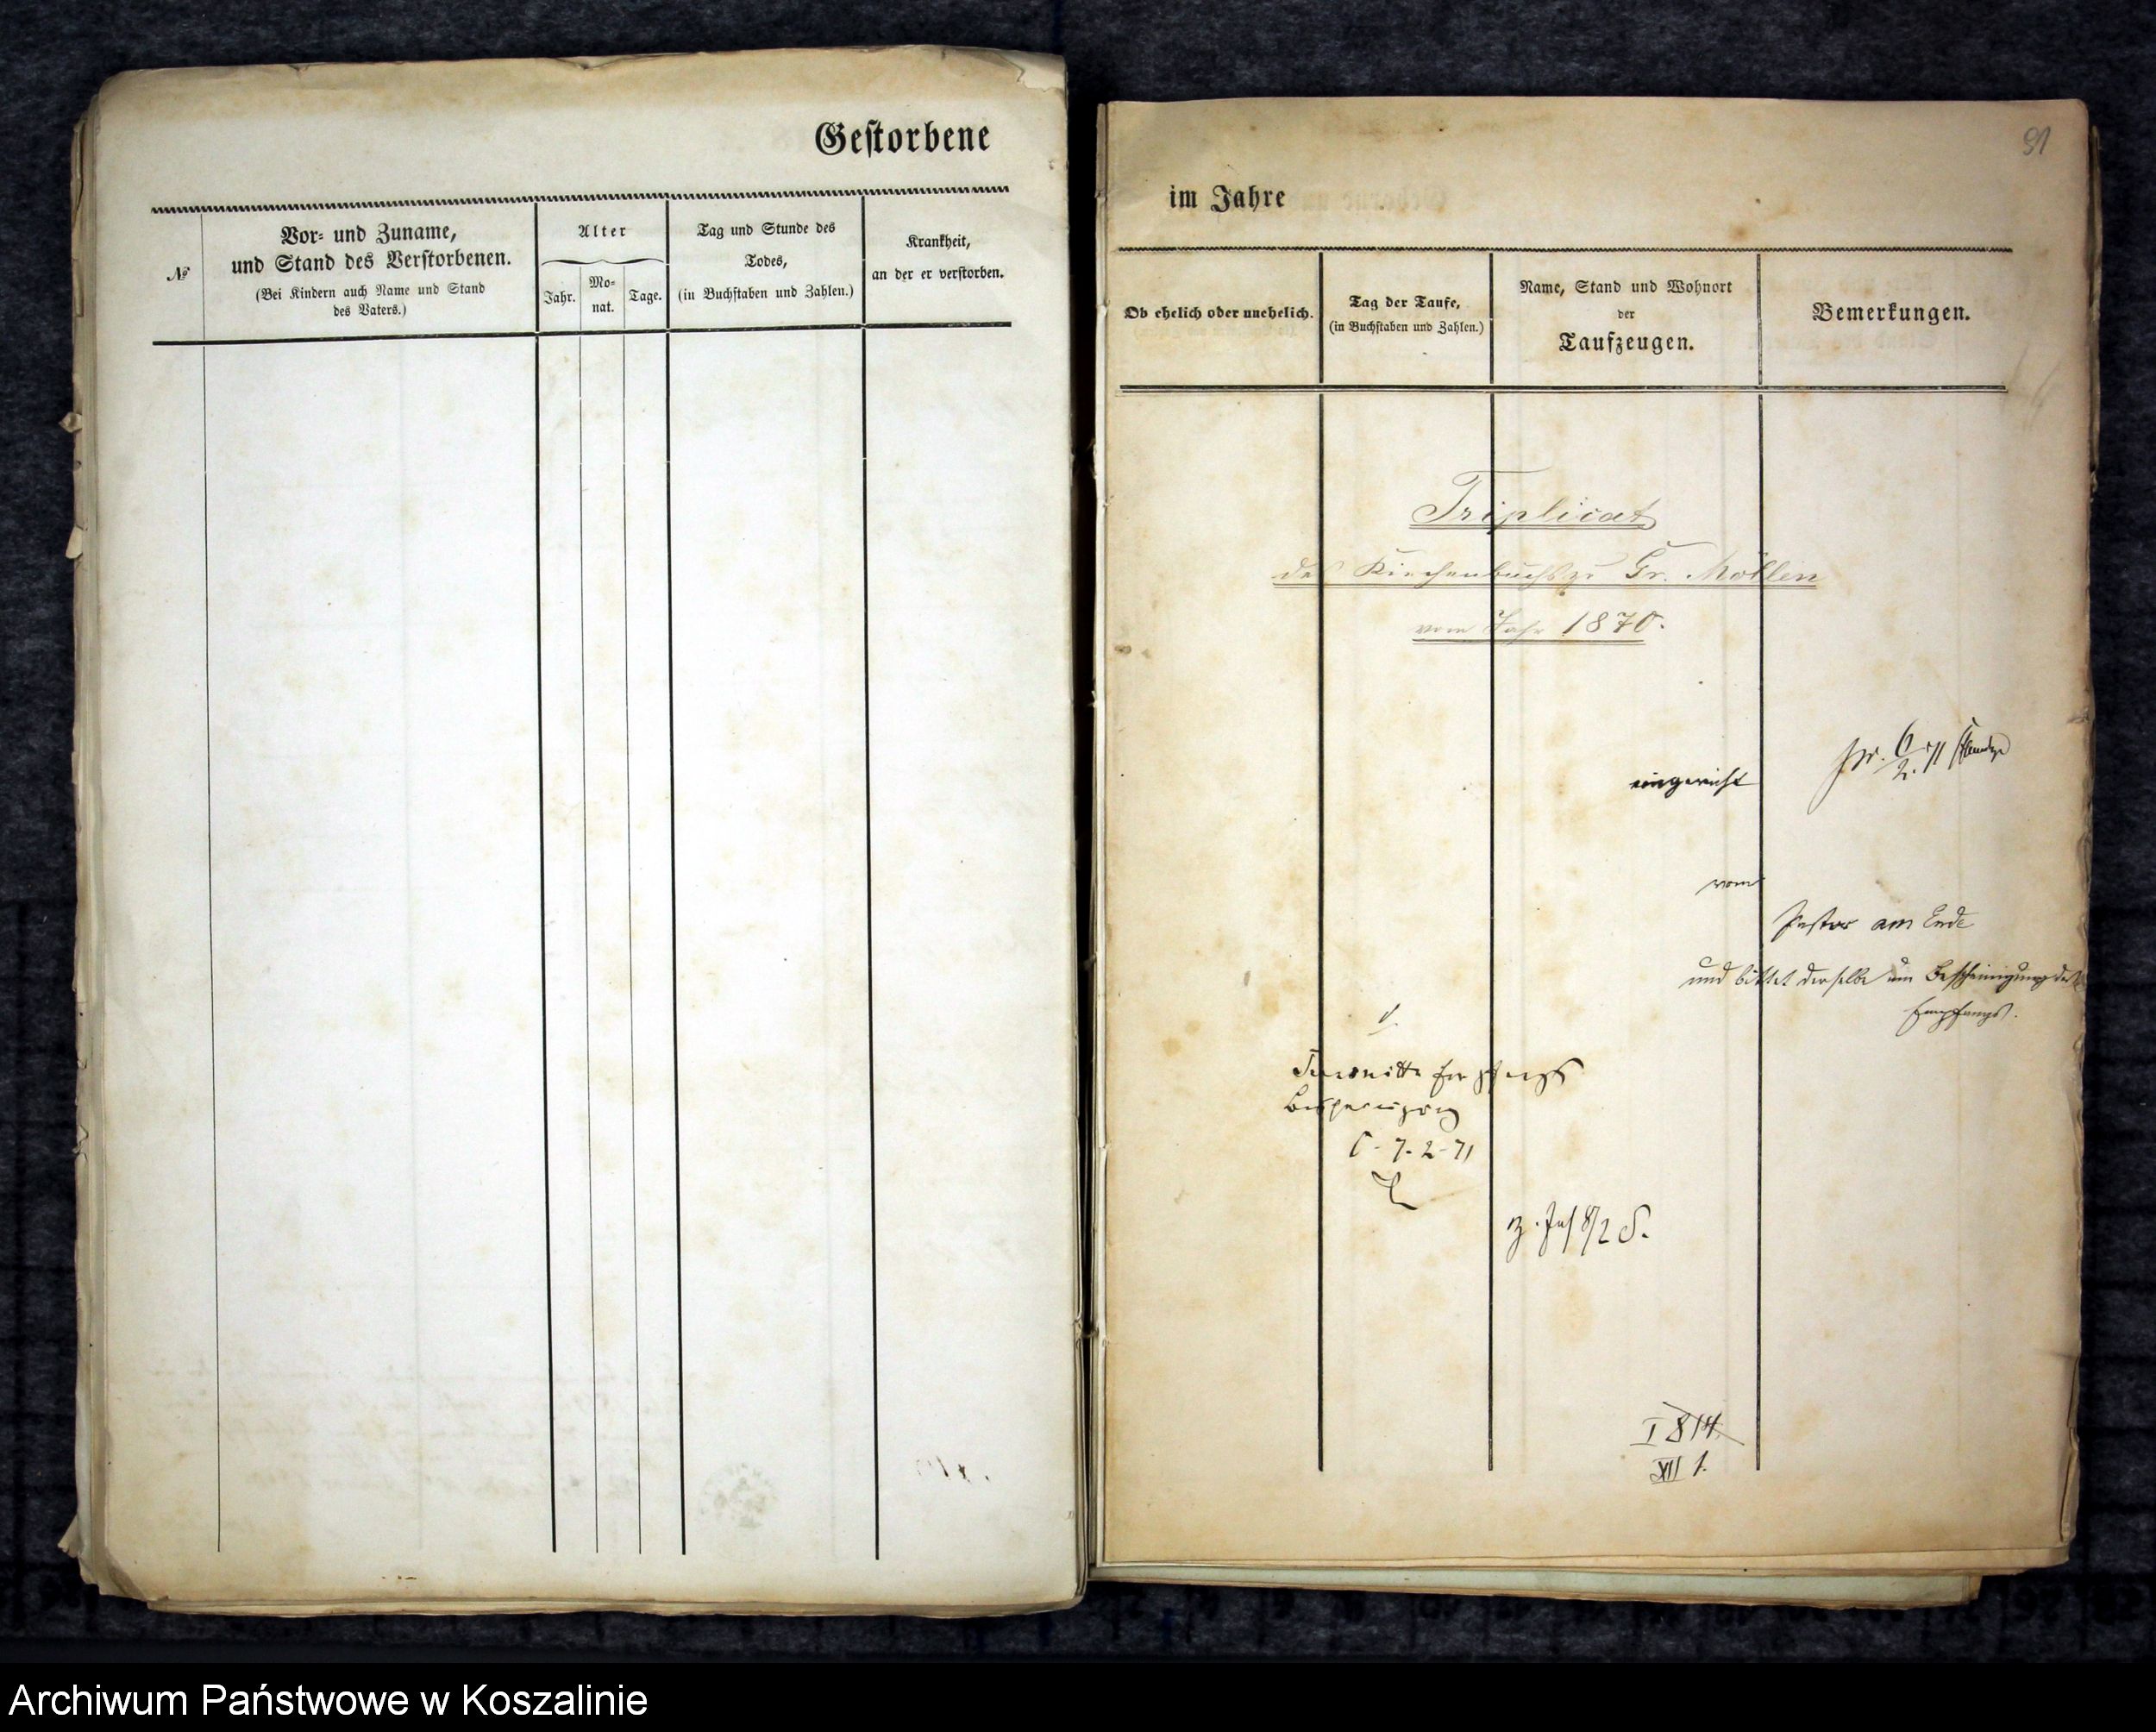 Gestorbene
№
Vor- und Zuname,
und Stand des Verstorbenen.
(Bei Kindern auch Name und Stand
des Vaters.)
Alter
Jahr.
Mo-
nat.
Tage.
Tag und Stunde des
Todes,
(in Buchstaben und Zahlen.)
Krankheit,
an der er verstorben.
91
im Jahre
Ob ehelich oder unehelich.
Tag der Taufe,
(in Buchstaben und Zahlen.)
Name, Stand und Wohnort
der
Taufzeugen.
Bemerkungen.
Triplicat
des Kirchenbuchs zu Gr. Möllen
vom Jahr 1870.
pr. 6/2. 71
eingereicht
vom
Pastor am Ende
und bittet derselbe um Bescheinigung des
Empfangs.
Bescheinigung
C. 7. 2. 71
I 814.
XII 1.
Archiwum Państwowe w Koszalinie